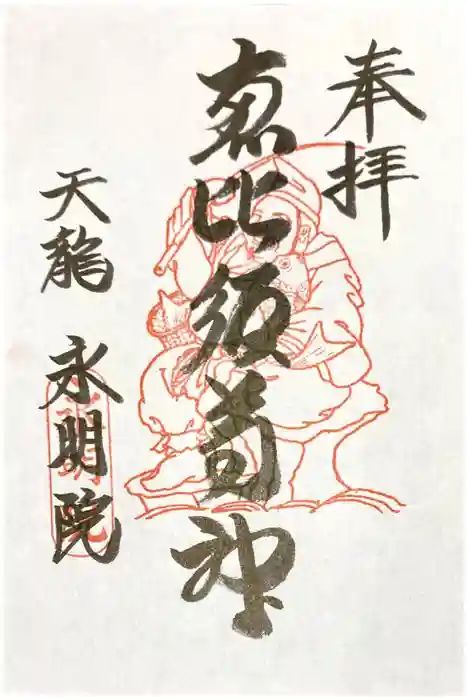 奉拝
恵比須尊神
天龍 永明院